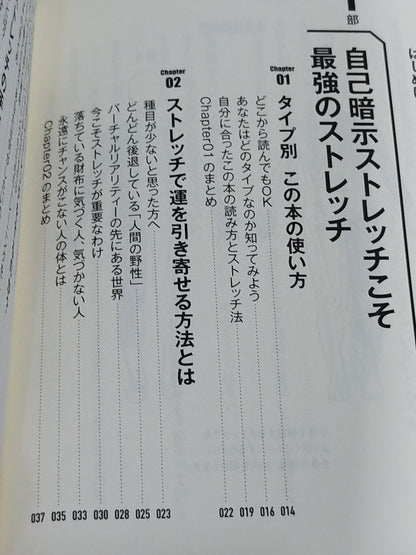 部
自己暗示ストレッチこそ
最強のストレッチ
Chapter
01 タイプ別 この本の使い方
どこから読んでもOK 014
あなたはどのタイプなのか知ってみよう 016
自分に合ったこの本の読み方とストレッチ法 019
Chapter01のまとめ 022
Chapter
02 ストレッチで運を引き寄せる方法とは
種目が少ないと思った方へ 023
どんどん後退している「人間の野性」 025
バーチャルリアリティーの先にある世界 028
今こそストレッチが重要なわけ 030
落ちている財布に気づく人、気づかない人 033
永遠にチャンスがこない人の体とは 035
Chapter02のまとめ 037